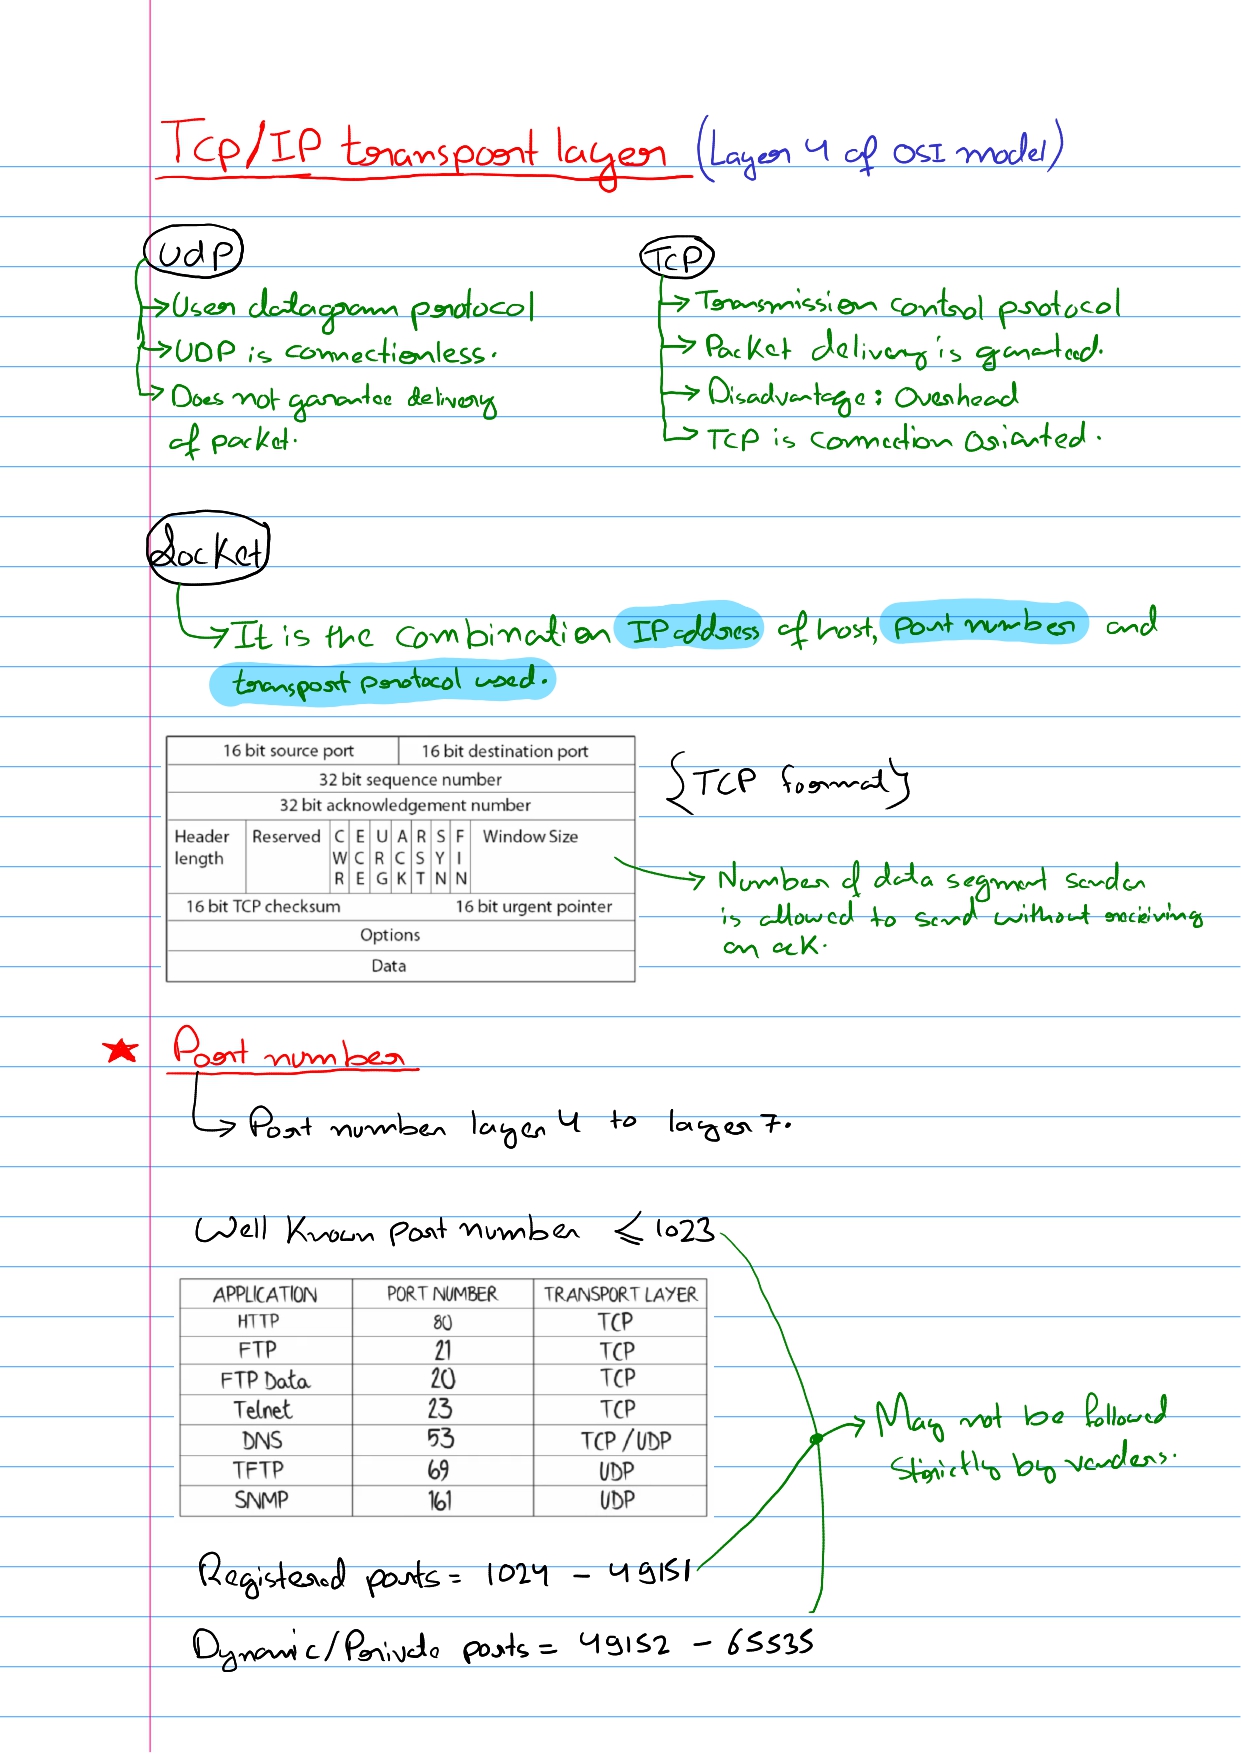 Tcp/IP transport layer (Layer 4 of OSI model)
UdP
→ User datagram protocol
→ UDP is connectionless.
→ Does not garantee delivery
of packet.
TCP
→ Transmission control protocol
→ Packet delivery is garanteed.
→ Disadvantage: Overhead
→ TCP is connection orianted.
Socket
→ It is the combination IP address of host, port number and
transport protocol used.
16 bit source port 16 bit destination port
32 bit sequence number
32 bit acknowledgement number
Header length Reserved CWR ECE URG ACK RST SYN FIN Window Size
16 bit TCP checksum 16 bit urgent pointer
Options
Data
{TCP format}
→ Number of data segment sender
is allowed to send without receiving
an ack.
★ Port number
→ Port number layer 4 to layer 7.
Well Known port number ≤ 1023
APPLICATION PORT NUMBER TRANSPORT LAYER
HTTP 80 TCP
FTP 21 TCP
FTP Data 20 TCP
Telnet 23 TCP
DNS 53 TCP/UDP
TFTP 69 UDP
SNMP 161 UDP
→ May not be followed
strictly by venders.
Registered ports = 1024 - 49151
Dynamic/Private ports = 49152 - 65535